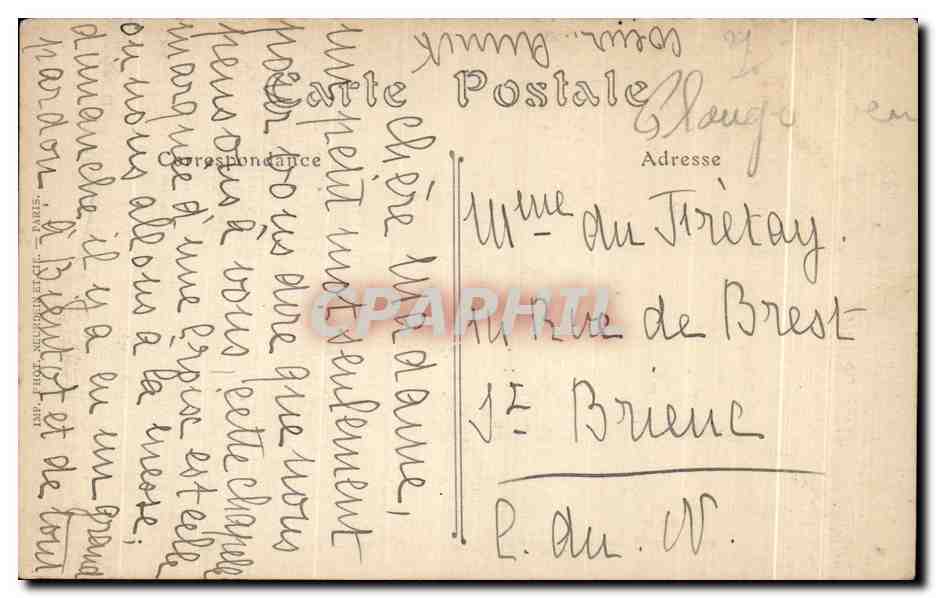 Carte Postale
Correspondance
Adresse
Chère Madame,
un petit mot seulement
pour vous dire que nous
pensons à vous cette chapelle
marqué d'une croix est celle
où nous allons à la messe;
dimanche il y a eu un grand
pardon à Bientôt et de tout
cœur. Annick
Mme du Frétay.
14 Rue de Brest
St Brieuc
C. du N.
IMP. PHOT. NEURDEIN ET CIE. — PARIS.
CPAPHIL